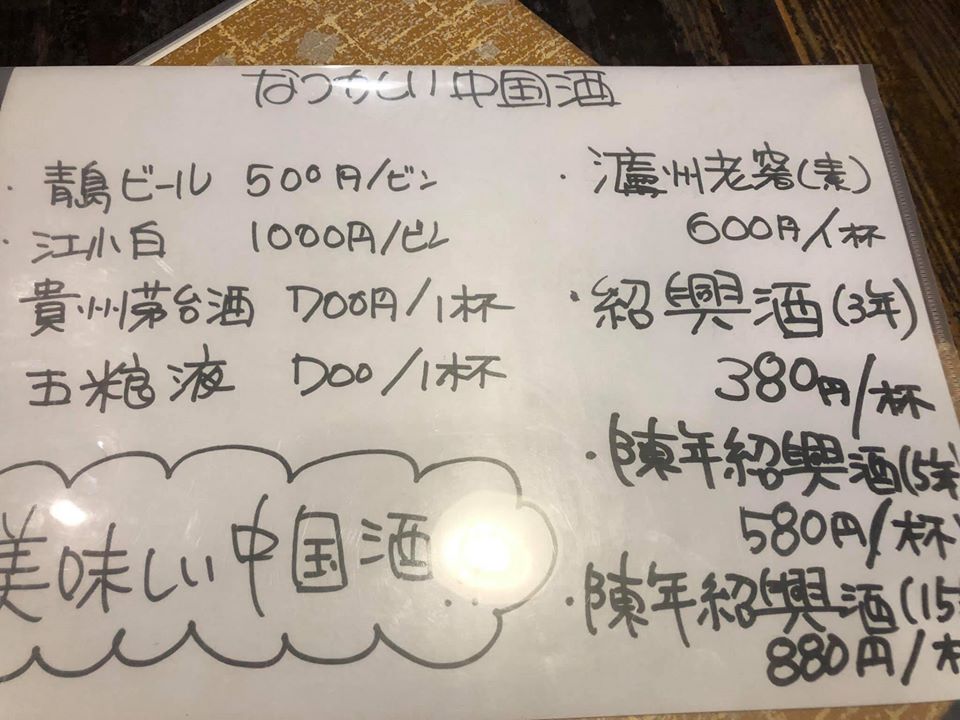 なつかしい中国酒
・青島ビール 500円/ビン
・江小白 1000円/ビン
貴州茅台酒 700円/1杯
五粮液 700/1杯
美味しい中国酒..
・瀘州老窖(素)
600円/1杯
・紹興酒(3年)
380円/杯
・陳年紹興酒(5年
580円/杯
・陳年紹興酒(15
880円/杯